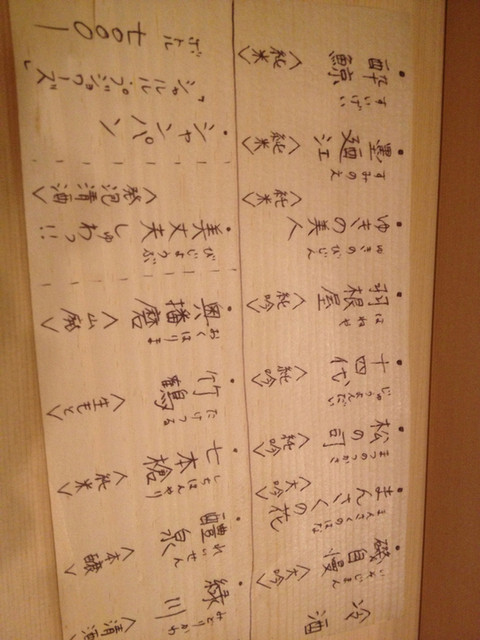 冷酒
・磯自慢
いそじまん
〈大吟〉
・まんさくの花
まんさくのはな
〈大吟〉
・松の司
まつのつかさ
〈純吟〉
・十四代
じゅうよんだい
〈純吟〉
・羽根屋
はねや
〈純吟〉
・ゆきの美人
ゆきのびじん
〈純米〉
・墨廼江
すみのえ
〈純米〉
・酔鯨
すいげい
〈純米〉
・緑川
みどりかわ
〈清酒
・醴泉
れいせん
〈本醸〉
・七本槍
しちほんやり
〈純米〉
・竹鶴
たけつる
〈生もと〉
・奥播磨
おくはりま
〈山廃〉
・美丈夫 しゅわっ!!
びじょうぶ
〈発泡清酒〉
・シャンパン
ボトル 七000ー